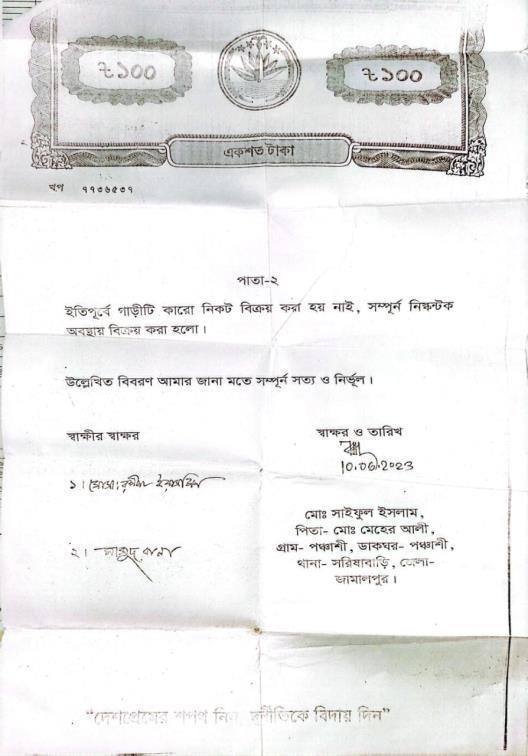 ৳১০০ ৳১০০
একশত টাকা
খপ ৭৭৩৬৫৩৭
পাতা-২
ইতিপূর্বে গাড়ীটি কারো নিকট বিক্রয় করা হয় নাই, সম্পূর্ন নিষ্কন্টক
অবস্থায় বিক্রয় করা হলো।
উল্লেখিত বিবরণ আমার জানা মতে সম্পূর্ন সত্য ও নির্ভূল।
স্বাক্ষীর স্বাক্ষর
স্বাক্ষর ও তারিখ
10.06.2023
১।
২।
মোঃ সাইফুল ইসলাম,
পিতা- মোঃ মেহের আলী,
গ্রাম- পঞ্চাশী, ডাকঘর- পঞ্চাশী,
থানা- সরিষাবাড়ি, জেলা-
জামালপুর।
“দেশপ্রেমের শপথ নিন, দুর্নীতিকে বিদায় দিন”